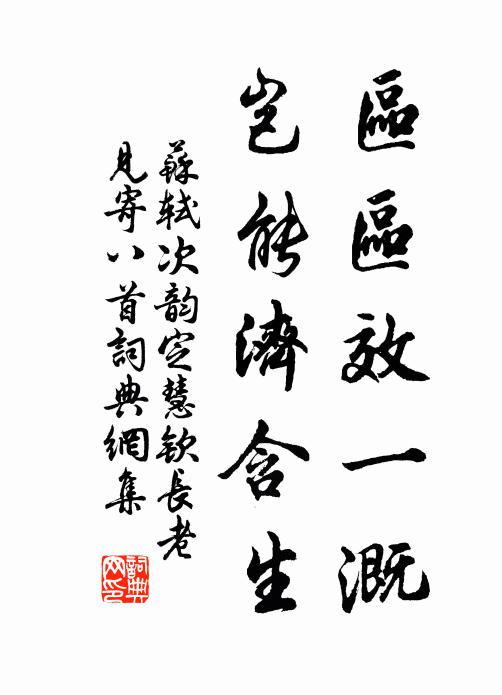 區區效一溉
豈能濟含生
蘇軾次韵定慧欽長老
見寄八首詞典網集
詞典
网印